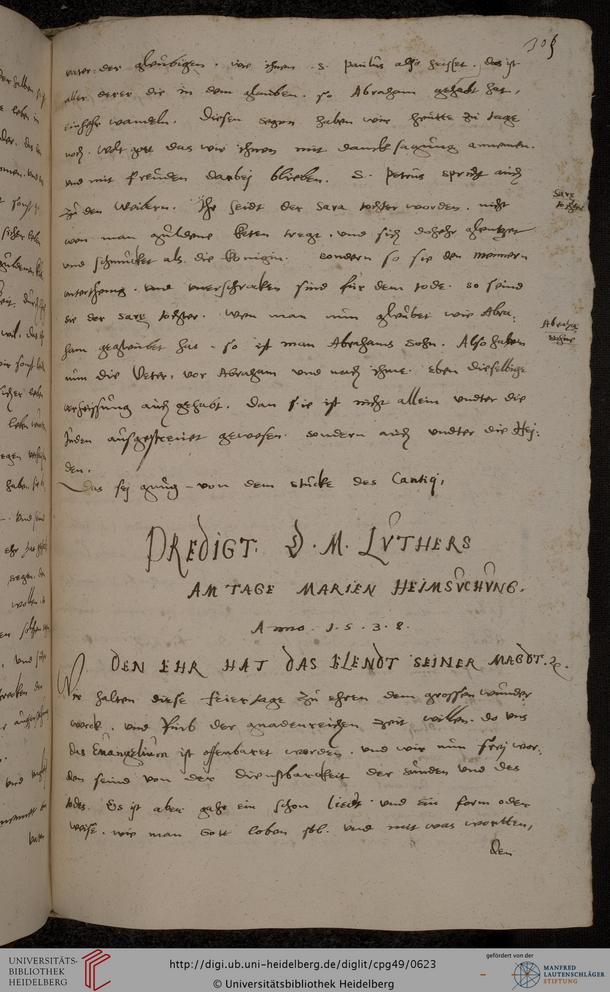 305
vater der gleubigen. wie ihnen S. Paulus also heisset. das ist
aller derer die in dem glauben. so Abraham gehabt hat,
einher wandeln. Diesen segen haben wir heutte zu tage
noch. wolt gott das wir ihnen mit dancksagung annemen.
und mit freuden darbej blieben. S. Petrus spricht auch
zu den Weibern. Ihr seidt der Sara tochter worden. nicht
wen man guldene keten tregt. und sich doher
und schmucket als die konigin. sondern so sie den mennern
unterthenig. und unerschrocken sind fur dem tode. so seind
sie der Sare tochter. wen man nun gleubet wie Abra:
ham gegleubet hat. so ist man Abrahams sohn. Also haben
nun die Veter, vor Abraham und nach ihme. eben dieselbige
verheissung auch gehabt. dan sie ist nicht allein undter die
Juden ausgestreuet gewesen. sondern auch undter die Hej:
den.
Das sej gnug von dem stucke des Cantici,
Sare tochter
Abraha sohne
PREDIGT. D. M. LVTHERS
AM TAGE MARIEN HEIMSVCHVNG.
Anno. 1.5.3.8.
DEN EHR HAT DAS ELENDT SEINER MAGDT. ꝛc.
Wir halten diese feiertage zu ehren dem grossen wunder
werck, und umb der gnadenreichen zeit willen. do uns
das Euangelium ist offenbaret worden. und wir nun frej wor:
den seind von der dienstbarckeit der sunden und des
todes. Es ist aber gahr ein schon liedt. und ein form oder
weise. wie man Gott loben sol. und mit was wortten,
den
UNIVERSITÄTS-
BIBLIOTHEK
HEIDELBERG
http://digi.ub.uni-heidelberg.de/diglit/cpg49/0623
© Universitätsbibliothek Heidelberg
gefördert von der
MANFRED
LAUTENSCHLÄGER
STIFTUNG